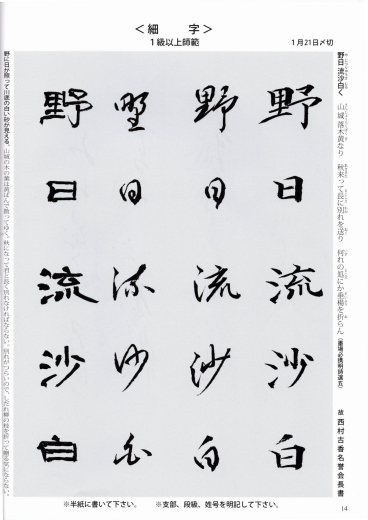 <細 字>
1級以上師範
1月21日〆切
野日 流沙白く 山城 落木黄なり 秋来って長に別れを送り 何れの処にか垂楊を折らん (墨場必携明詩選五)
野日流沙白
野日流沙白
野日流沙白
野日流沙白
野に日が降って川底の白い砂が見える。山城の木の葉は黄ばんで散ってゆく。秋になって君と長く別れなければならない。別れがつらいので、しだれ柳の枝を折って贈る気にならない。
故 西村古香名誉会長書
※半紙に書いて下さい。 ※支部、段級、姓号を明記して下さい。
14